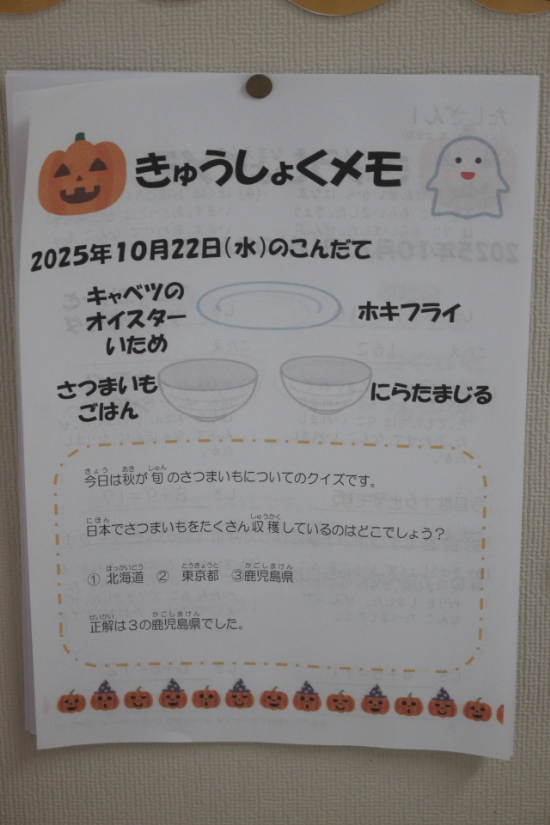 きゅうしょくメモ
2025年10月22日(水)のこんだて
キャベツの
オイスター
いため
ホキフライ
さつまいも
ごはん
にらたまじる
今日は秋が旬のさつまいもについてのクイズです。
日本でさつまいもをたくさん収穫しているのはどこでしょう？
① 北海道 ② 東京都 ③鹿児島県
正解は3の鹿児島県でした。